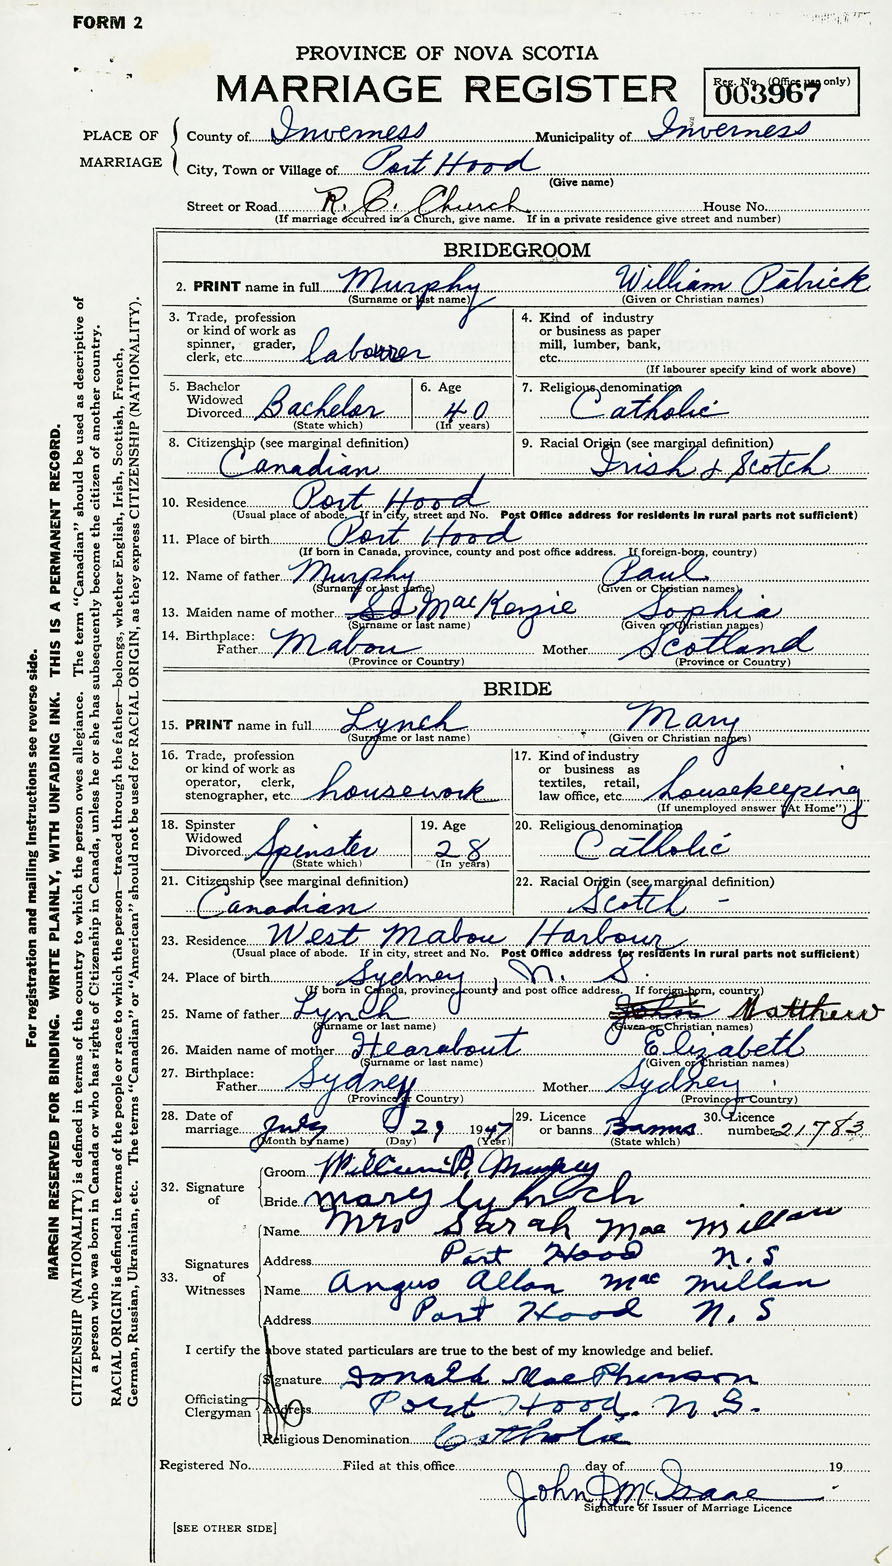 FORM 2
PROVINCE OF NOVA SCOTIA
MARRIAGE REGISTER
Reg. No. (Office use only)
003967
PLACE OF MARRIAGE
County of Inverness Municipality of Inverness
City, Town or Village of Port Hood
(Give name)
Street or Road R. C. Church House No.
(If marriage occurred in a Church, give name. If in a private residence give street and number)
BRIDEGROOM
2. PRINT name in full Murphy William Patrick
(Surname or last name) (Given or Christian names)
3. Trade, profession or kind of work as spinner, grader, clerk, etc. labourer
4. Kind of industry or business as paper mill, lumber, bank, etc.
(If labourer specify kind of work above)
5. Bachelor Widowed Divorced Bachelor
(State which)
6. Age 40
(In years)
7. Religious denomination Catholic
8. Citizenship (see marginal definition) Canadian
9. Racial Origin (see marginal definition) Irish & Scotch
10. Residence Port Hood
(Usual place of abode. If in city, street and No. Post Office address for residents in rural parts not sufficient)
11. Place of birth Port Hood
(If born in Canada, province, county and post office address. If foreign-born, country)
12. Name of father Murphy Paul
(Surname or last name) (Given or Christian names)
13. Maiden name of mother So MacKenzie Sophia
(Surname or last name) (Given or Christian names)
14. Birthplace:
Father Mabou Mother Scotland
(Province or Country) (Province or Country)
BRIDE
15. PRINT name in full Lynch Mary
(Surname or last name) (Given or Christian names)
16. Trade, profession or kind of work as operator, clerk, stenographer, etc. housework
17. Kind of industry or business as textiles, retail, law office, etc. housekeeping
(If unemployed answer "At Home")
18. Spinster Widowed Divorced Spinster
(State which)
19. Age 28
(In years)
20. Religious denomination Catholic
21. Citizenship (see marginal definition) Canadian
22. Racial Origin (see marginal definition) Scotch -
23. Residence West Mabou Harbour
(Usual place of abode. If in city, street and No. Post Office address for residents in rural parts not sufficient)
24. Place of birth Sydney, N. S.
(If born in Canada, province, county and post office address. If foreign-born, country)
25. Name of father Lynch John Matthew
(Surname or last name) (Given or Christian names)
26. Maiden name of mother Hearabout Elizabeth
(Surname or last name) (Given or Christian names)
27. Birthplace:
Father Sydney Mother Sydney
(Province or Country) (Province or Country)
28. Date of marriage July 29 1947
(Month by name) (Day) (Year)
29. Licence or banns Banns
(State which)
30. Licence number 21783
32. Signature of
Groom William P. Murphy
Bride mary lynch
33. Signatures of Witnesses
Name Mrs Sarah Mac Millan
Address Port Hood N.S
Name Angus Allan Mac Millan
Address Port Hood N.S
I certify the above stated particulars are true to the best of my knowledge and belief.
Officiating Clergyman
Signature Donald MacPherson
Address Port Hood. N.S.
Religious Denomination Catholic
Registered No. Filed at this office day of 19
John D McIsaac
Signature of Issuer of Marriage Licence
[SEE OTHER SIDE]
For registration and mailing instructions see reverse side.
MARGIN RESERVED FOR BINDING. WRITE PLAINLY, WITH UNFADING INK. THIS IS A PERMANENT RECORD.
CITIZENSHIP (NATIONALITY) is defined in terms of the country to which the person owes allegiance. The term "Canadian" should be used as descriptive of
a person who was born in Canada or who has rights of Citizenship in Canada, unless he or she has subsequently become the citizen of another country.
RACIAL ORIGIN is defined in terms of the people or race to which the person—traced through the father—belongs, whether English, Irish, Scottish, French,
German, Russian, Ukrainian, etc. The terms "Canadian" or "American" should not be used for RACIAL ORIGIN, as they express CITIZENSHIP (NATIONALITY).